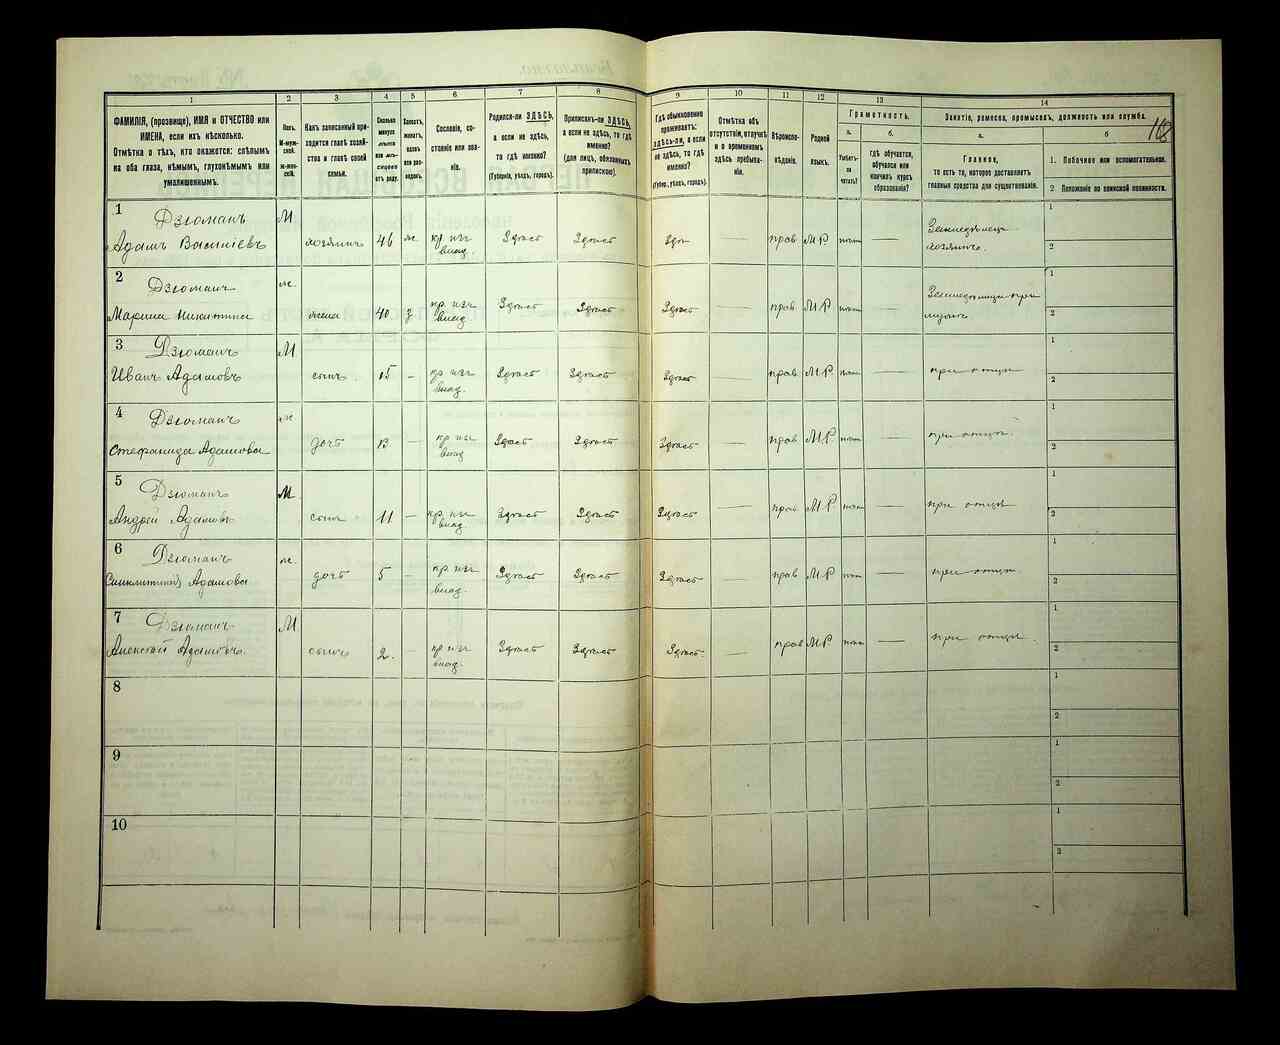 1 2 3 4 5 6 7 8 9 10 11 12 13 14
ФАМИЛІЯ, (прозвище), ИМЯ и ОТЧЕСТВО или
ИМЕНА, если ихъ нѣсколько.
Отмѣтка о тѣхъ, кто окажется: слѣпымъ
на оба глаза, нѣмымъ, глухонѣмымъ или
умалишеннымъ.
Полъ.
М-муж-
ской.
ж-жен-
скій.
Какъ записанный при-
ходится главѣ хозяй-
ства и главѣ своей
семьи.
Сколько
минуло
лѣтъ
или мѣ-
сяцевъ
отъ роду.
Холостъ,
женатъ,
вдовъ
или раз-
веденъ.
Сословіе, со-
стояніе или зва-
ніе.
Родился-ли ЗДѢСЬ,
а если не здѣсь,
то гдѣ именно?
(Губернія, уѣздъ, городъ).
Приписанъ-ли ЗДѢСЬ,
а если не здѣсь, то гдѣ
именно?
(для лицъ, обязанныхъ
припискою).
Гдѣ обыкновенно
проживаетъ:
ЗДѢСЬ-ли, а если
не здѣсь, то гдѣ
именно?
(Губер., уѣздъ, городъ).
Отмѣтка объ
отсутствіи, отлучкѣ
и о временномъ
здѣсь пребыва-
ніи.
Вѣроиспо-
вѣданіе.
Родной
языкъ.
Грамотность.
а.
Умѣетъ-
ли
читать?
б.
гдѣ обучается,
обучался или
кончилъ курсъ
образованія?
Занятіе, ремесло, промыселъ, должность или служба.
а.
Главное,
то есть то, которое доставляетъ
главныя средства для существованія.
б
1. Побочное или вспомогательное.
2. Положеніе по воинской повинности.
1 Дзюманъ М
Адамъ хозяинъ 46 ж. кр. изъ влад. Здѣсь Здѣсь прав М.Р. — хозяинъ.
1
2
2 Дзюманъ ж.
Марина жена 40 з кр. изъ влад. Здѣсь Здѣсь Здѣсь — прав М.Р. —
1
2
3 Дзюманъ М
Иванъ Адамовъ сынъ 15 — кр изъ влад. Здѣсь Здѣсь Здѣсь — прав М.Р. — при отцѣ
1
2
4 Дзюманъ ж
Стефанида Адамова дочь 13 — кр изъ влад Здѣсь Здѣсь Здѣсь — прав М.Р. — при отцѣ.
1
2
5 Дзюманъ М.
Андрей Адамовъ сынъ 11 — кр. изъ влад Здѣсь Здѣсь Здѣсь — прав М.Р — при отцѣ
1
2
6 Дзюманъ ж.
Адамова дочь 5 — кр. изъ влад. Здѣсь Здѣсь Здѣсь — прав М.Р — при отцѣ.
1
2
7 Дзюманъ М
Алексѣй Адамовъ. сынъ 2. — кр изъ влад. Здѣсь Здѣсь Здѣсь — прав М.Р. — при отцѣ.
1
2
8
1
2
9
1
2
10
1
2